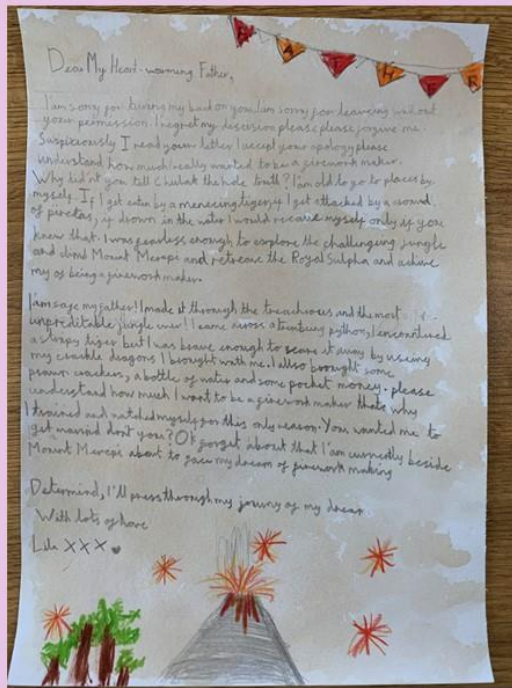 FATHER
Dear My Heart-warming Father,
I'am sorry for turning my back on you. I am sorry for leaving without
your permission. I regret my discision please please forgive me.
Suspisiously I read your letter I accept your apology please
understand how much I really wanted to be a firework maker.
Why did'nt you tell Chulak the hole truth? I'am old to go to places by
myself. If I get eaten by a menecing tiger, if I get attacked by a crowd
of piretas, if drown in the water I would rescue myself only if you
knew that. I was fearless enough to explore the challenging jungle
and climb Mount Merapi and retreave the Royal Sulpha and achive
my of being a firework maker.
I'am safe my father! I made it through the treachrous and the most
unpreditable jungle ever! I came across a python, I encountured
a stripy tiger but I was brave enough to scare it away by using
my crackle dragons I brought with me. I allso brought some
prawn crackers, a bottle of water and some pocket money. please
understand how much I want to be a firework maker thats why
I trained and myself for this only reason. You wanted me to
get marriad dont you? Oh forget about that I am currently beside
Mount Merapi about to face my dream of firework making
Determind, I'll press through my journy of my dream
With lots of love
Lila XXX